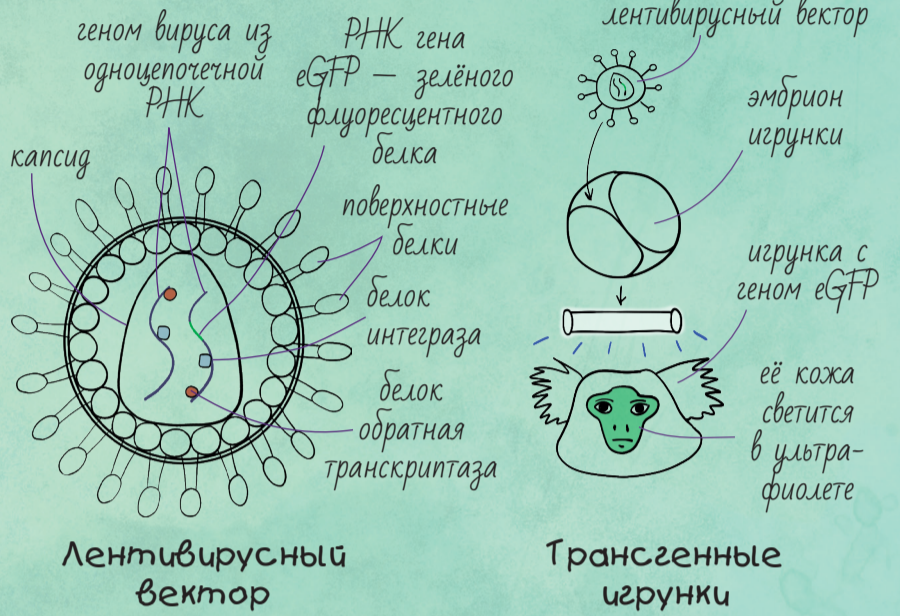 геном вируса из
одноцепочечной
РНК
РНК гена
eGFP — зелёного
флуоресцентного
белка
капсид
поверхностные
белки
белок
интеграза
белок
обратная
транскриптаза
Лентивирусный
вектор
лентивирусный вектор
эмбрион
игрунки
игрунка с
геном eGFP
её кожа
светится
в ультра-
фиолете
Трансгенные
игрунки